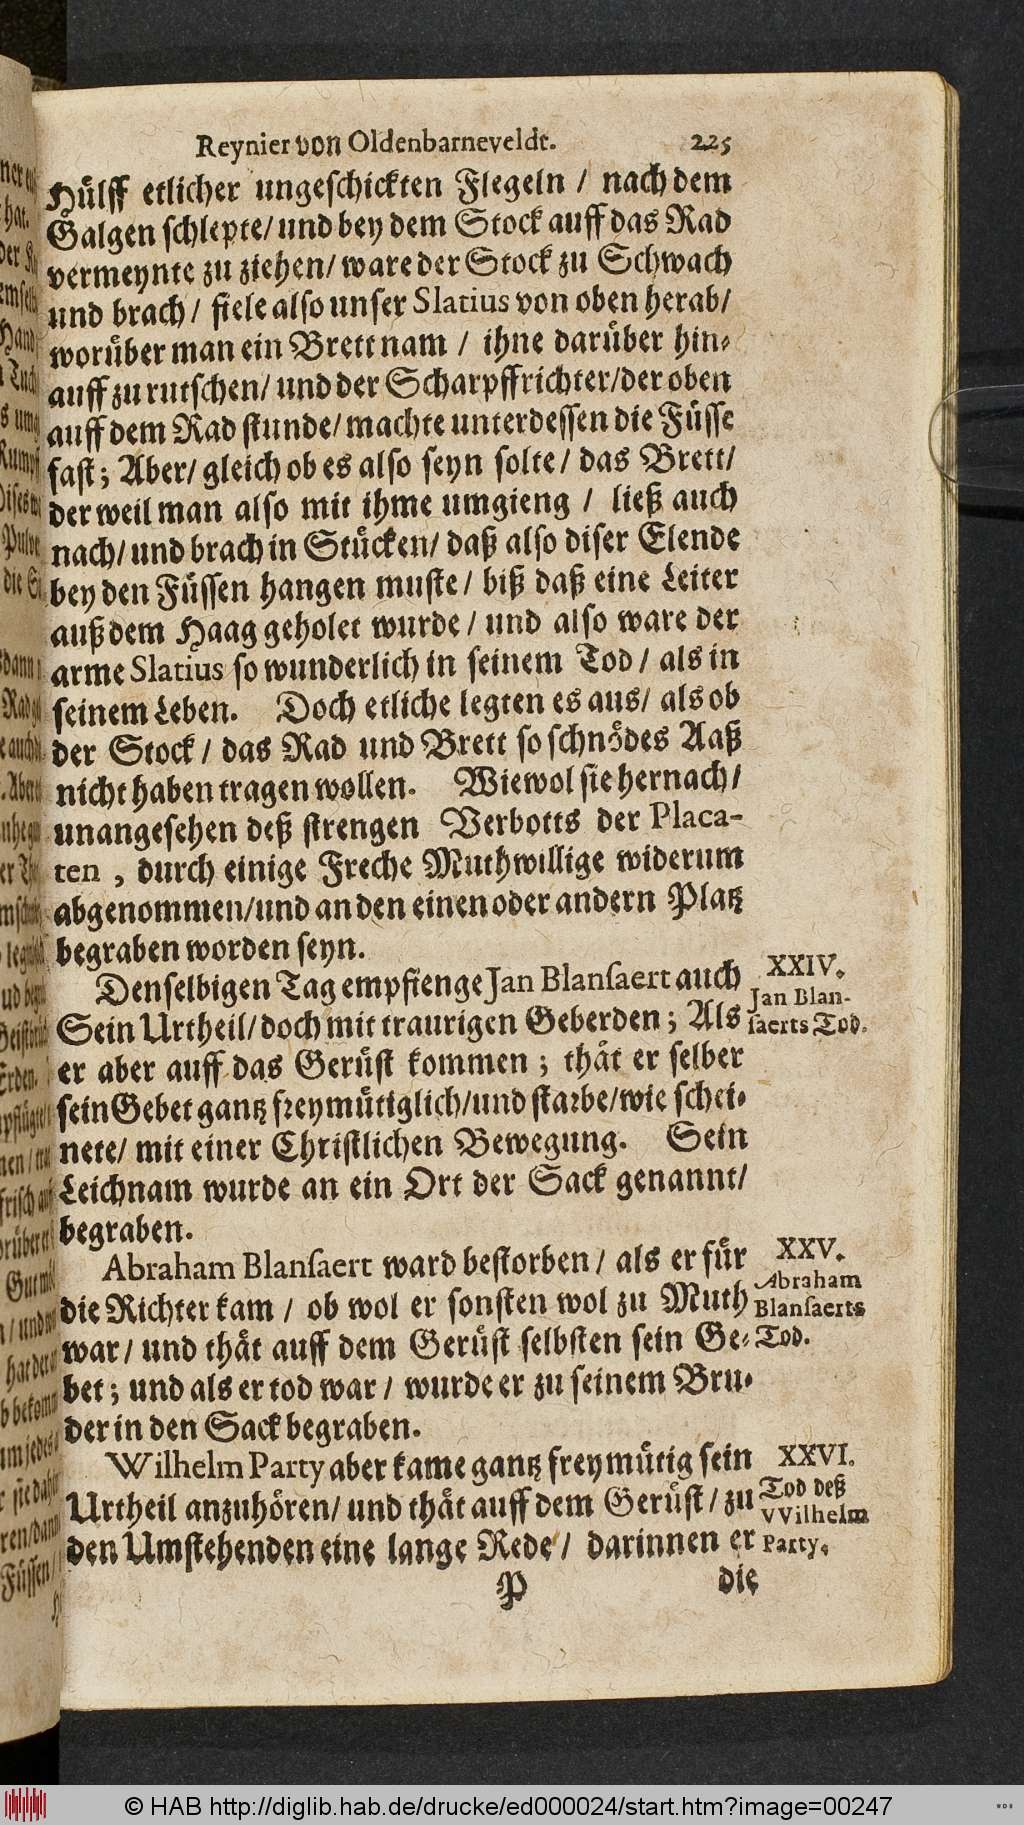 Reynier von Oldenbarneveldt. 225
Hülff etlicher ungeschickten Flegeln / nach dem
Galgen schlepte/ und bey dem Stock auff das Rad
vermeynte zu ziehen/ ware der Stock zu Schwach
und brach / fiele also unser Slatius von oben herab/
worüber man ein Brett nam / ihne darüber hin-
auff zu rutschen/ und der Scharpffrichter/der oben
auff dem Rad stunde/ machte unterdessen die Füsse
fast; Aber/ gleich ob es also seyn solte/ das Brett/
der weil man also mit ihme umgieng / ließ auch
nach/ und brach in Stücken/ daß also diser Elende
bey den Füssen hangen muste/ biß daß eine Leiter
auß dem Haag geholet wurde / und also ware der
arme Slatius so wunderlich in seinem Tod / als in
seinem Leben. Doch etliche legten es aus/ als ob
der Stock / das Rad und Brett so schnödes Aaß
nicht haben tragen wollen. Wiewol sie hernach/
unangesehen deß strengen Verbotts der Placa-
ten , durch einige Freche Muthwillige widerum
abgenommen/und an den einen oder andern Platz
begraben worden seyn.
Denselbigen Tag empfienge Jan Blanſaert auch
Sein Urtheil/ doch mit traurigen Geberden; Als
er aber auff das Gerüst kommen ; thät er selber
sein Gebet gantz freymütiglich/und starbe/wie schei-
nete/ mit einer Christlichen Bewegung. Sein
Leichnam wurde an ein Ort der Sack genannt/
begraben.
XXIV.
Jan Blan-
ſaerts Tod.
Abraham Blanſaert ward bestorben / als er für
die Richter kam / ob wol er sonsten wol zu Muth
war/ und thät auff dem Gerüst selbsten sein Ge-
bet; und als er tod war / wurde er zu seinem Bru-
der in den Sack begraben.
XXV.
Abraham
Blanſaerts
Tod.
Wilhelm Party aber kame gantz freymütig sein
Urtheil anzuhören/ und thät auff dem Gerüst/ zu
den Umstehenden eine lange Rede / darinnen er
XXVI.
Tod deß
VVilhelm
Party.
P die
© HAB http://diglib.hab.de/drucke/ed000024/start.htm?image=00247